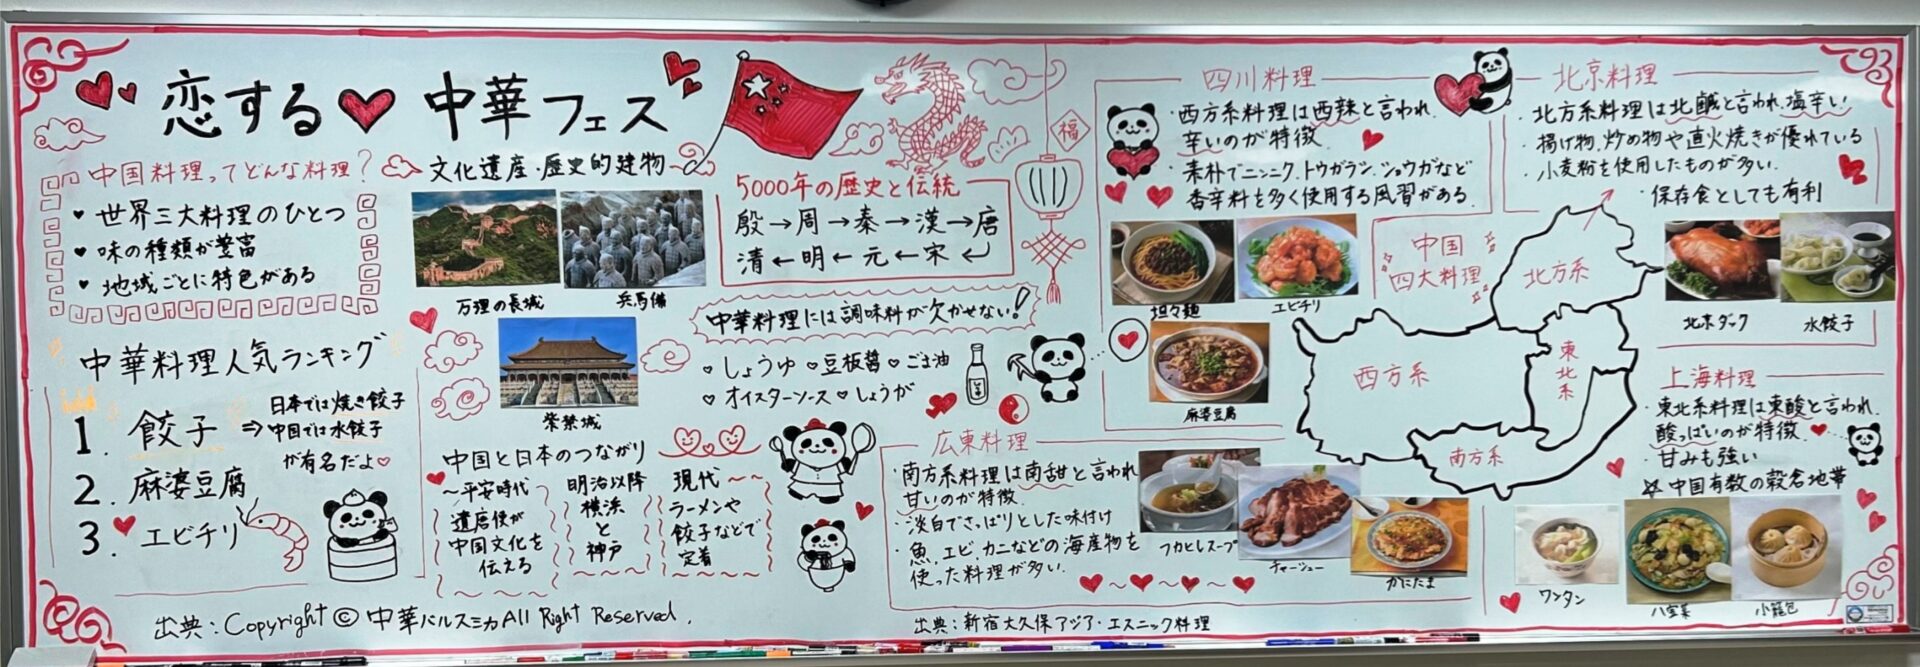 恋する 中華フェス
中国料理ってどんな料理？
世界三大料理のひとつ
味の種類が豊富
地域ごとに特色がある
中華料理人気ランキング
1. 餃子
⇒
日本では焼き餃子
中国では水餃子
が有名だよ♡
2. 麻婆豆腐
3. エビチリ
出典：Copyright © 中華バルスミカ All Right Reserved.
文化遺産・歴史的建物
万里の長城
兵馬俑
紫禁城
5000年の歴史と伝統
殷→周→秦→漢→唐
清←明←元←宋↩
福
中華料理には調味料が欠かせない！
♡しょうゆ ♡豆板醤 ♡ごま油
♡オイスターソース ♡しょうが
中国と日本のつながり
～平安時代
遣唐使が
中国文化を
伝える
明治以降
横浜
と
神戸
現代～～
ラーメンや
餃子などで
定着
四川料理
・西方系料理は西辣と言われ、
辛いのが特徴
・素朴でニンニク、トウガラシ、ショウガなど
香辛料を多く使用する風習がある。
坦々麺
エビチリ
麻婆豆腐
北京料理
・北方系料理は北鹹と言われ、塩辛い
・揚げ物、炒め物や直火焼きが優れている
・小麦粉を使用したものが多い。
・保存食としても有利
北京ダック
水餃子
中国
四大料理
北方系
西方系
東北系
南方系
広東料理
・南方系料理は南甜と言われ
甘いのが特徴
・淡白でさっぱりとした味付け
・魚、エビ、カニなどの海産物を
使った料理が多い。
フカヒレスープ
チャーシュー
かにたま
上海料理
・東北系料理は東酸と言われ、
酸っぱいのが特徴
・甘みも強い
☆中国有数の穀倉地帯
ワンタン
八宝菜
小籠包
出典：新宿大久保アジア・エスニック料理